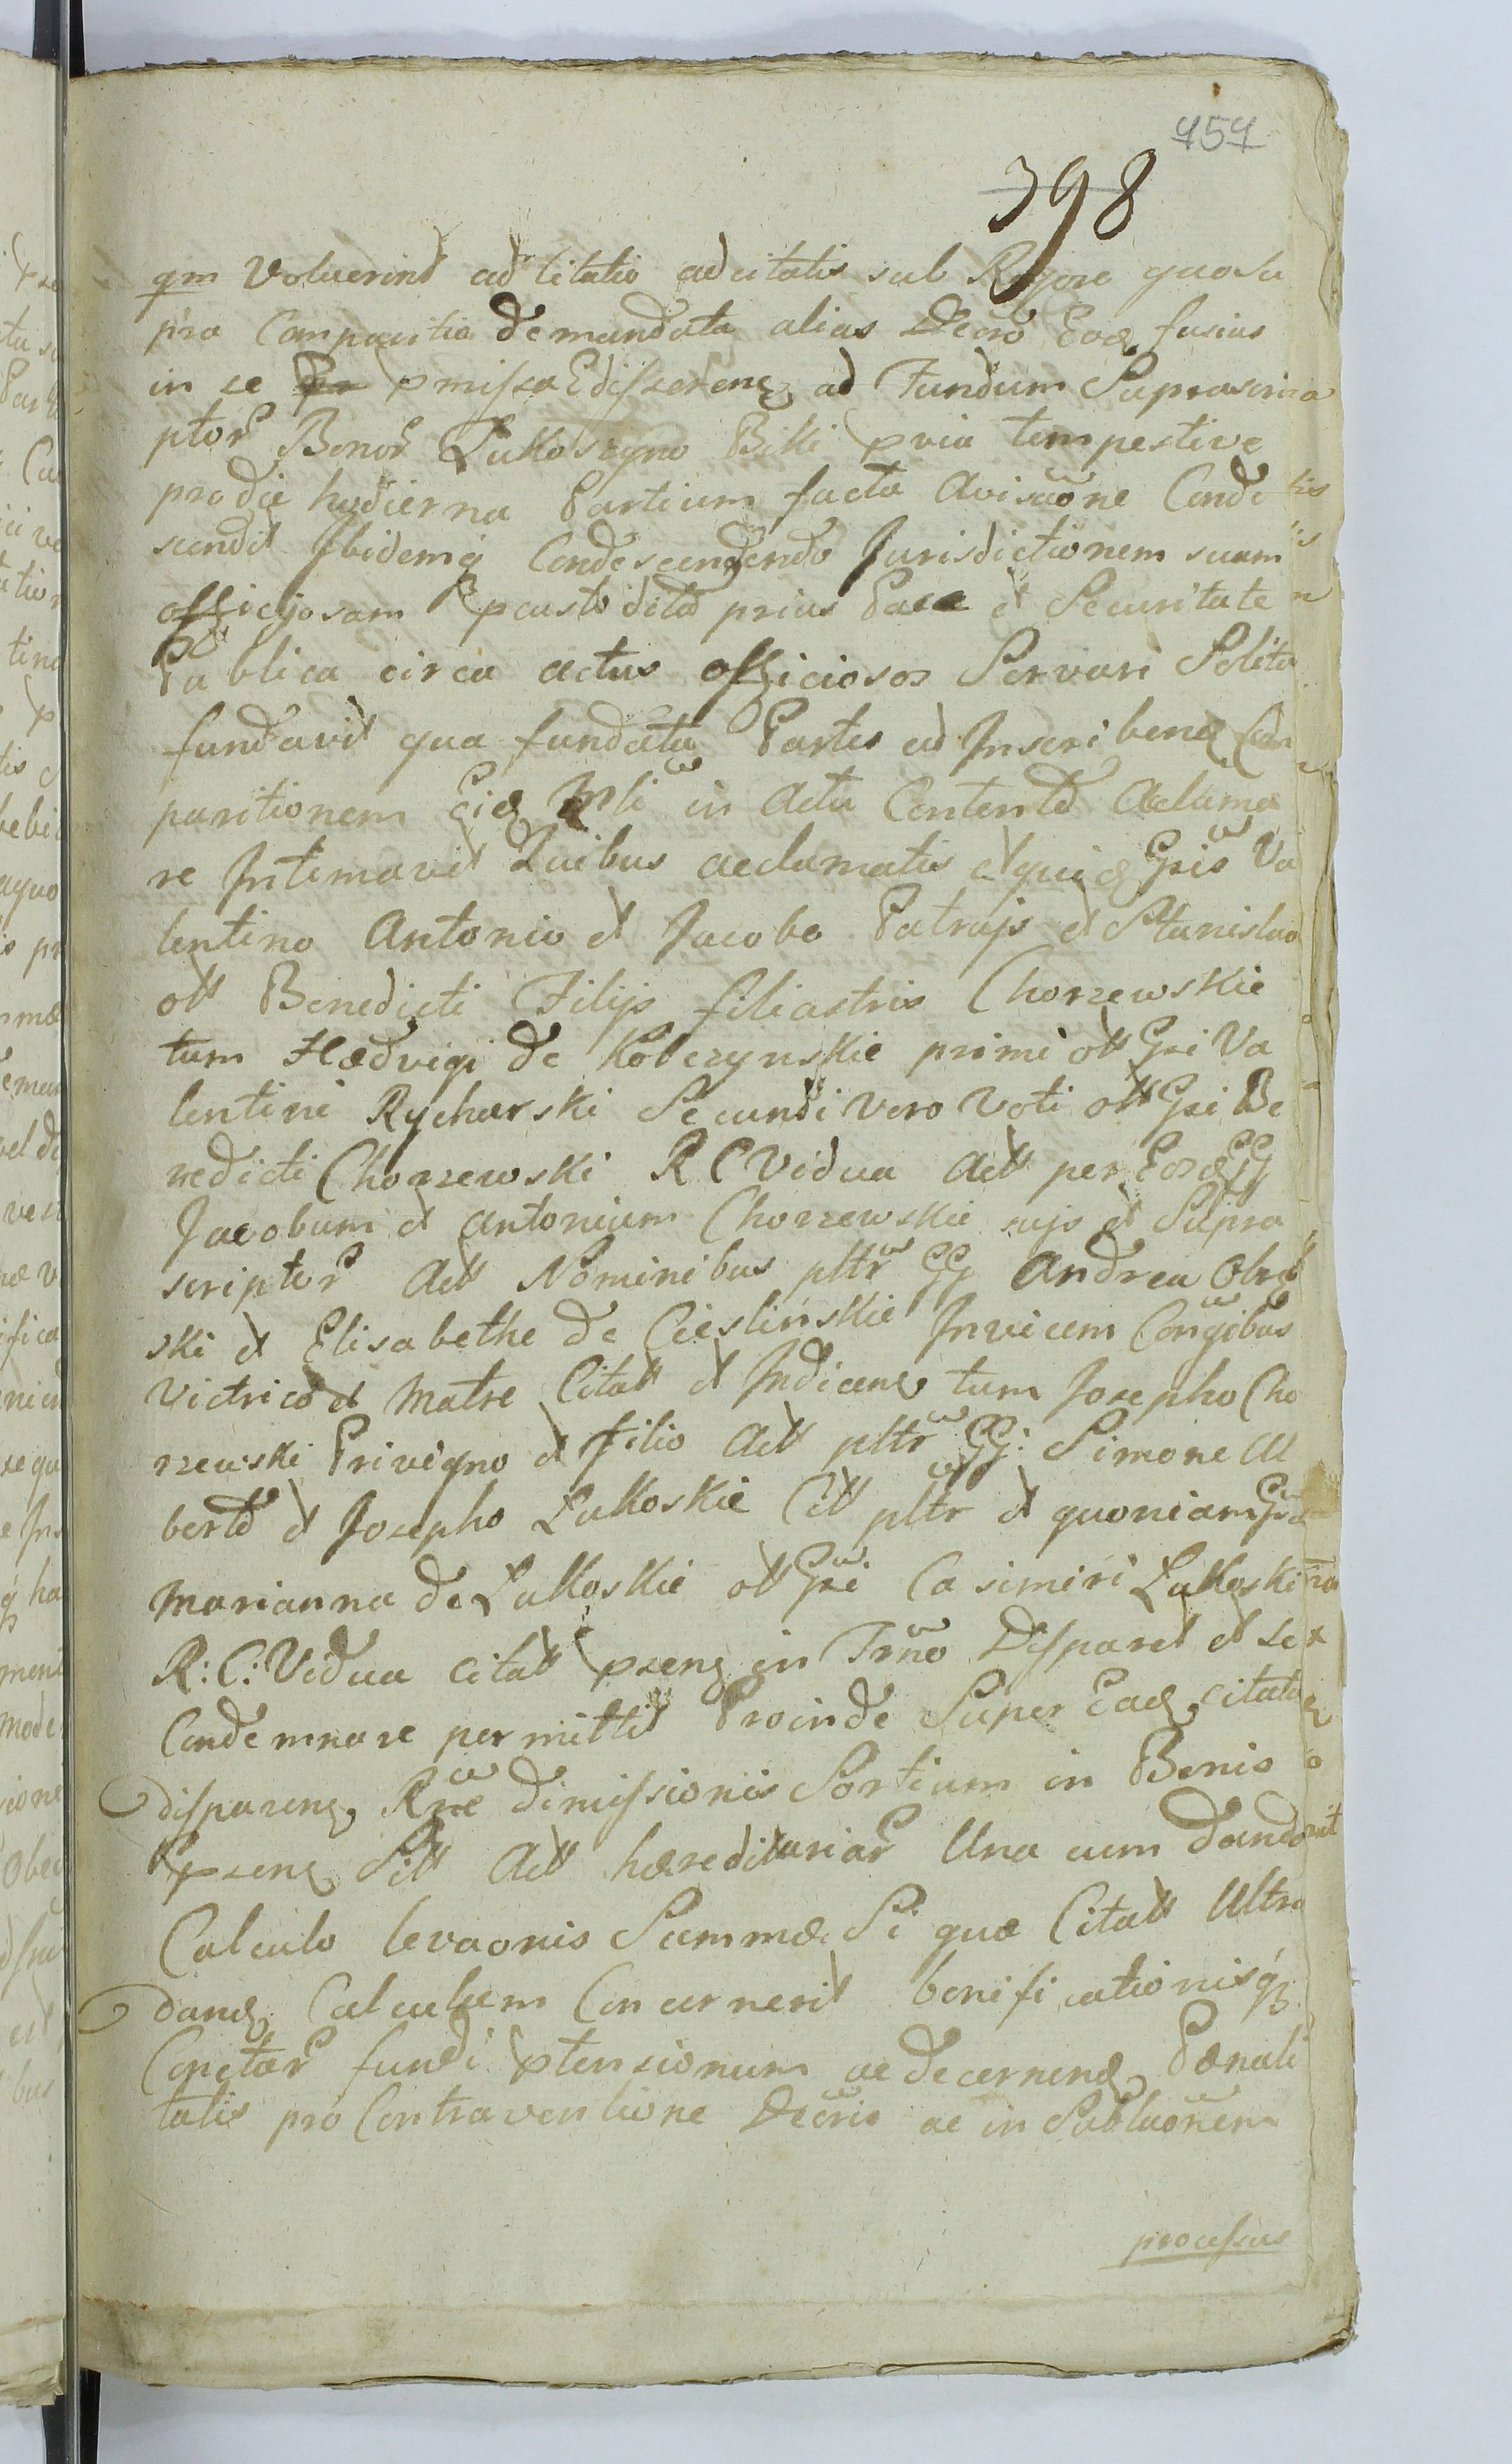 457
398
qm Voluerint ad citatio ad citatis sub Rigore quo su
pra Comparitia demandata alias Decrō Eod fusius
in se pmissa Edisserens ad Fundum Suprascri
ptor Bonor Łukoszyno Biki pvia tempestive
pro die hodierna Partium facta Avisaōne Conde
scendit Ibidemq Condescendendo Jurisdictionem suam
officijosam pcustodita prius Pace et Securitate
Publica circa actus officiosos Servari Solita
fundavit qua fundata Partes ad Inscribend Com
paritionem Eid Mli in Actu Content Aclama
re Intimavit Quibus acclamatis et Gsis Va
lentino Antonio et Jacobo Patrujs et Stanislao
olt Benedicti Filijs filiastris Chorzewskie
tum Hædvigi de Kobczynskie primi olt Gsi Va
lentini Rycharski Secundi vero Voti olt Gsi Be
nedicti Chorzewski R C Vidua Actt per Eosd GG
Jacobum et Antonium Chorzewskie sujs et Supra
scriptor Actt Nominibus pltr GG Andrea Olszew
ski et Elisabethe de Cieslinskie Invicem Congibus
Victrico et Matre Citatt et Indicens tum Josepho Cho
rzewski Privigno et filio Actt pltr GG: Simone Al
berto et Josepho Łukoskie Citt pltr et quoniam Gsa
Marianna de Łukoskie olt Gsi Casimiri Łukoski
R: C: Vidua citatt psens in Trno Disparet et se
Condemnare permittit Proinde Super Ead citata
disparens Rne dimissionis Sortium in Bonis
psens Sitt Actt hæreditariar Una cum dando
Calculo levaonis Summæ Si quæ Citatt Ultra
dand Calculum Concernerit bonificationisq
Conctar fundi ptensionum ac decernend Pænali
tatis pro Contraventione Decris ac in Sublaonem
processus